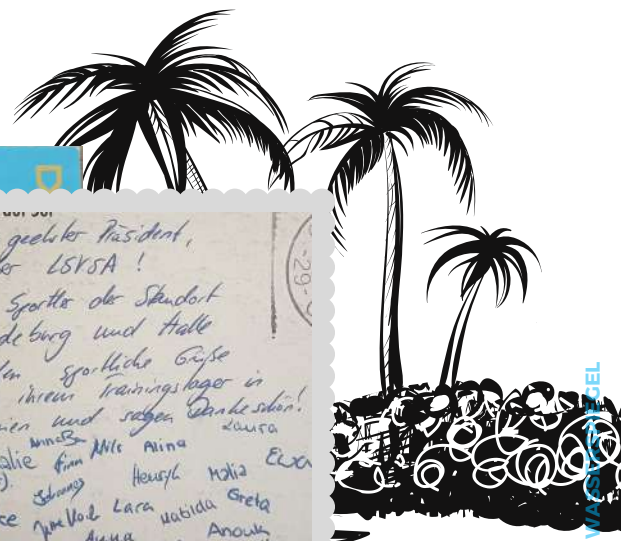 geehrter Präsident,
er LSVSA !
Sportler der Standort
deburg und Halle
en sportliche Grüße
ihrem Trainingslager in
ien und sagen Dankeschön!
Laura
alie Finn Nils Alina
Henryk Malia
ce Lara Matilda Greta
Anna Anouk
-29-
WASSERSPIEGEL